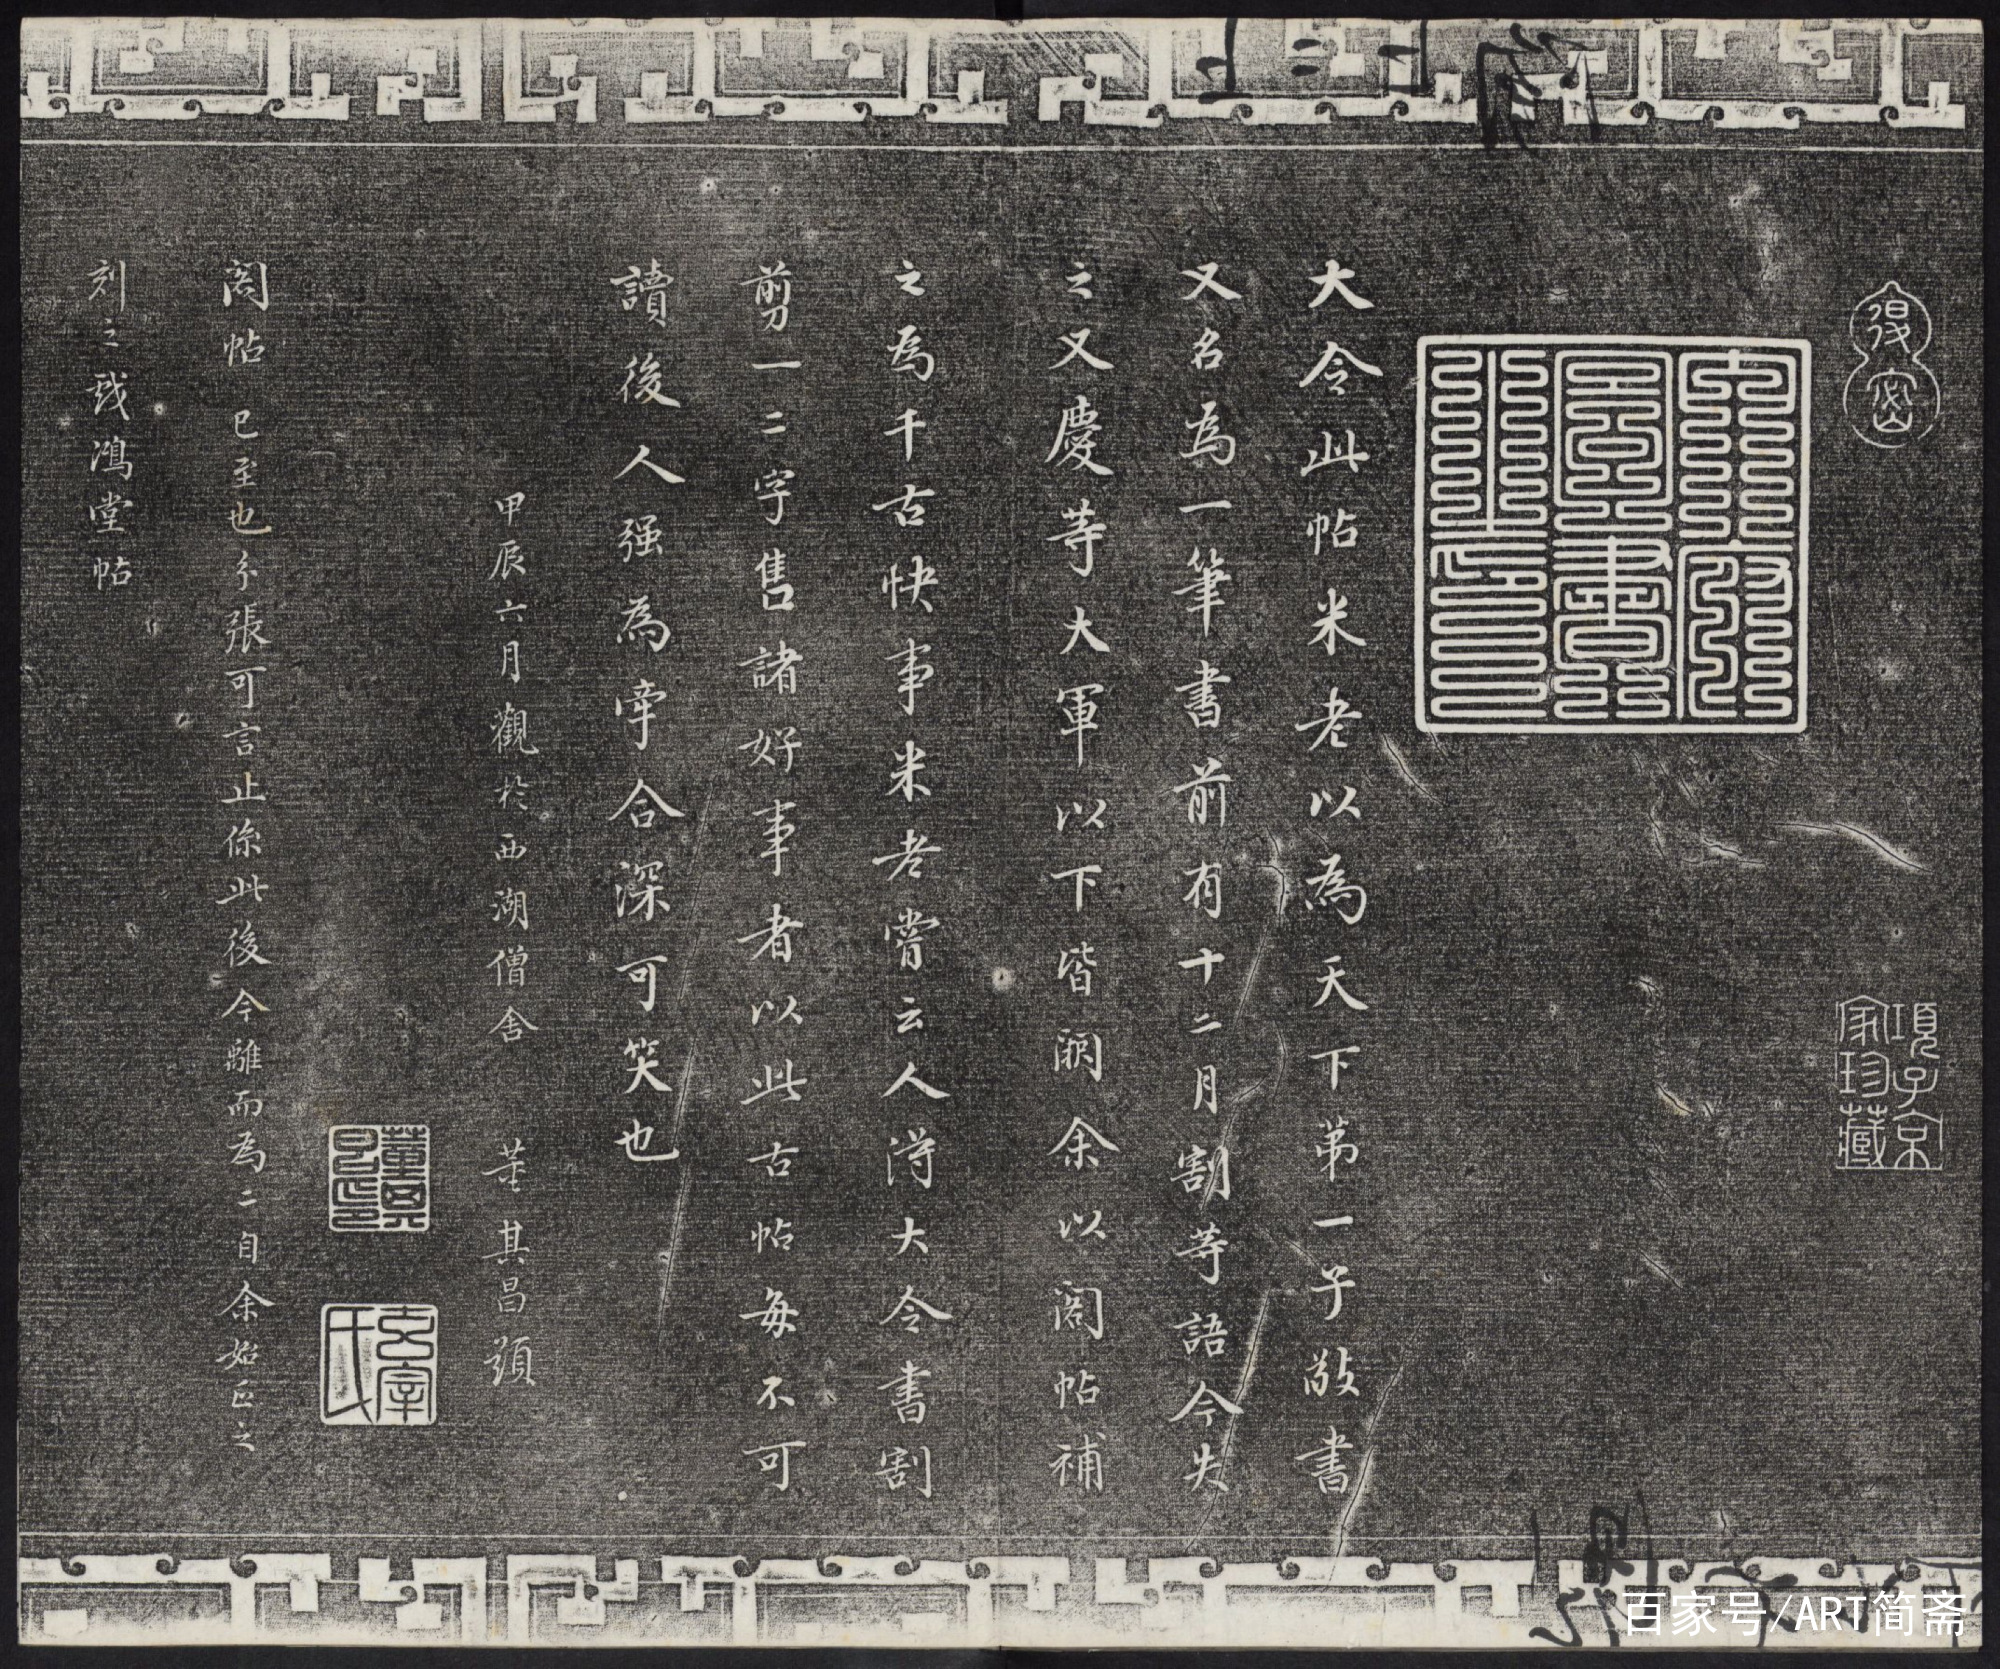 大令此帖米老以為天下第一子敬書
又名為一筆書前有十二月割等語今失
之又慶等大軍以下皆闕余以閣帖補
之為千古快事米老嘗云人得大令書割
剪一二字售諸好事者以此古帖每不可
讀後人强為牵合深可笑也
甲辰六月觀於西湖僧舍 董其昌題
閣帖 已至也分張可言止係此後今離而為二自余始正之
刻之戏鴻堂帖
項子京
家珍藏
董其
昌印
玄宰
氏
百家号/ART简斋